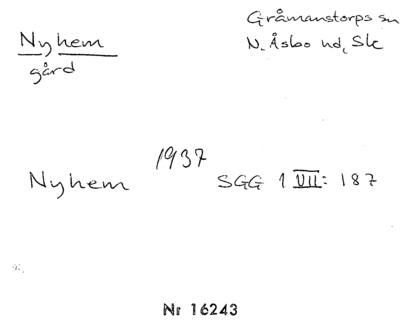 Nyhem
gård
Gråmanstorps sn
N. Åsbo hd, Sk
1937
Nyhem SGG 1 VII: 187
Nr 16243